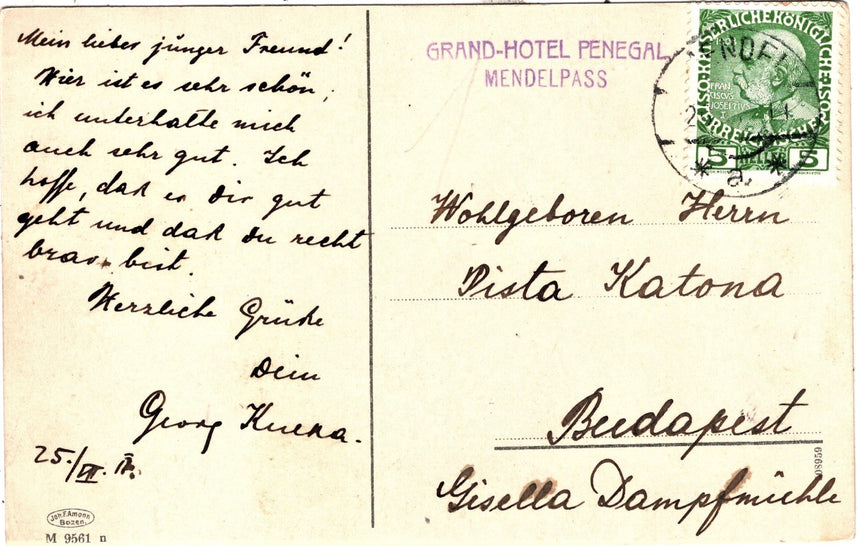 Mein lieber junger Freund!
Hier ist es sehr schön,
ich unterhalte mich
auch sehr gut. Ich
hoffe, daß es Dir gut
geht und daß Du recht
brav bist.
Herzliche Grüße
Dein
Georg
25./VII.
Joh. F. Amonn
Bozen.
M 9561 n
GRAND-HOTEL PENEGAL
MENDELPASS
KAISERLICHE KÖNIGLICHE
ÖSTERREICH
FRAN
CISCVS
JOSEPHVS
I
5 HELLER 5
Wohlgeboren Herrn
Pista Katona
Budapest
Gisella Dampfmühle